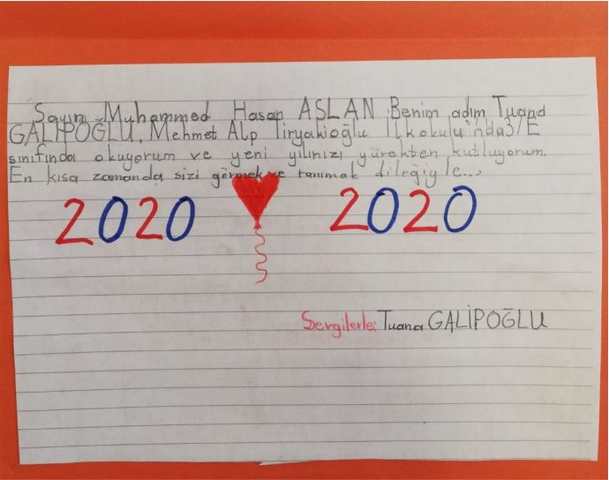 Sayın Muhammed Hasan ASLAN Benim adım Tuana
GALİPOĞLU. Mehmet Alp Tiryakioğlu İlkokulu'nda 3/E
sınıfında okuyorum ve yeni yılınızı yürekten kutluyorum.
En kısa zamanda sizi görmek ve tanımak dileğiyle...
2020 2020
Sevgilerle: Tuana GALİPOĞLU